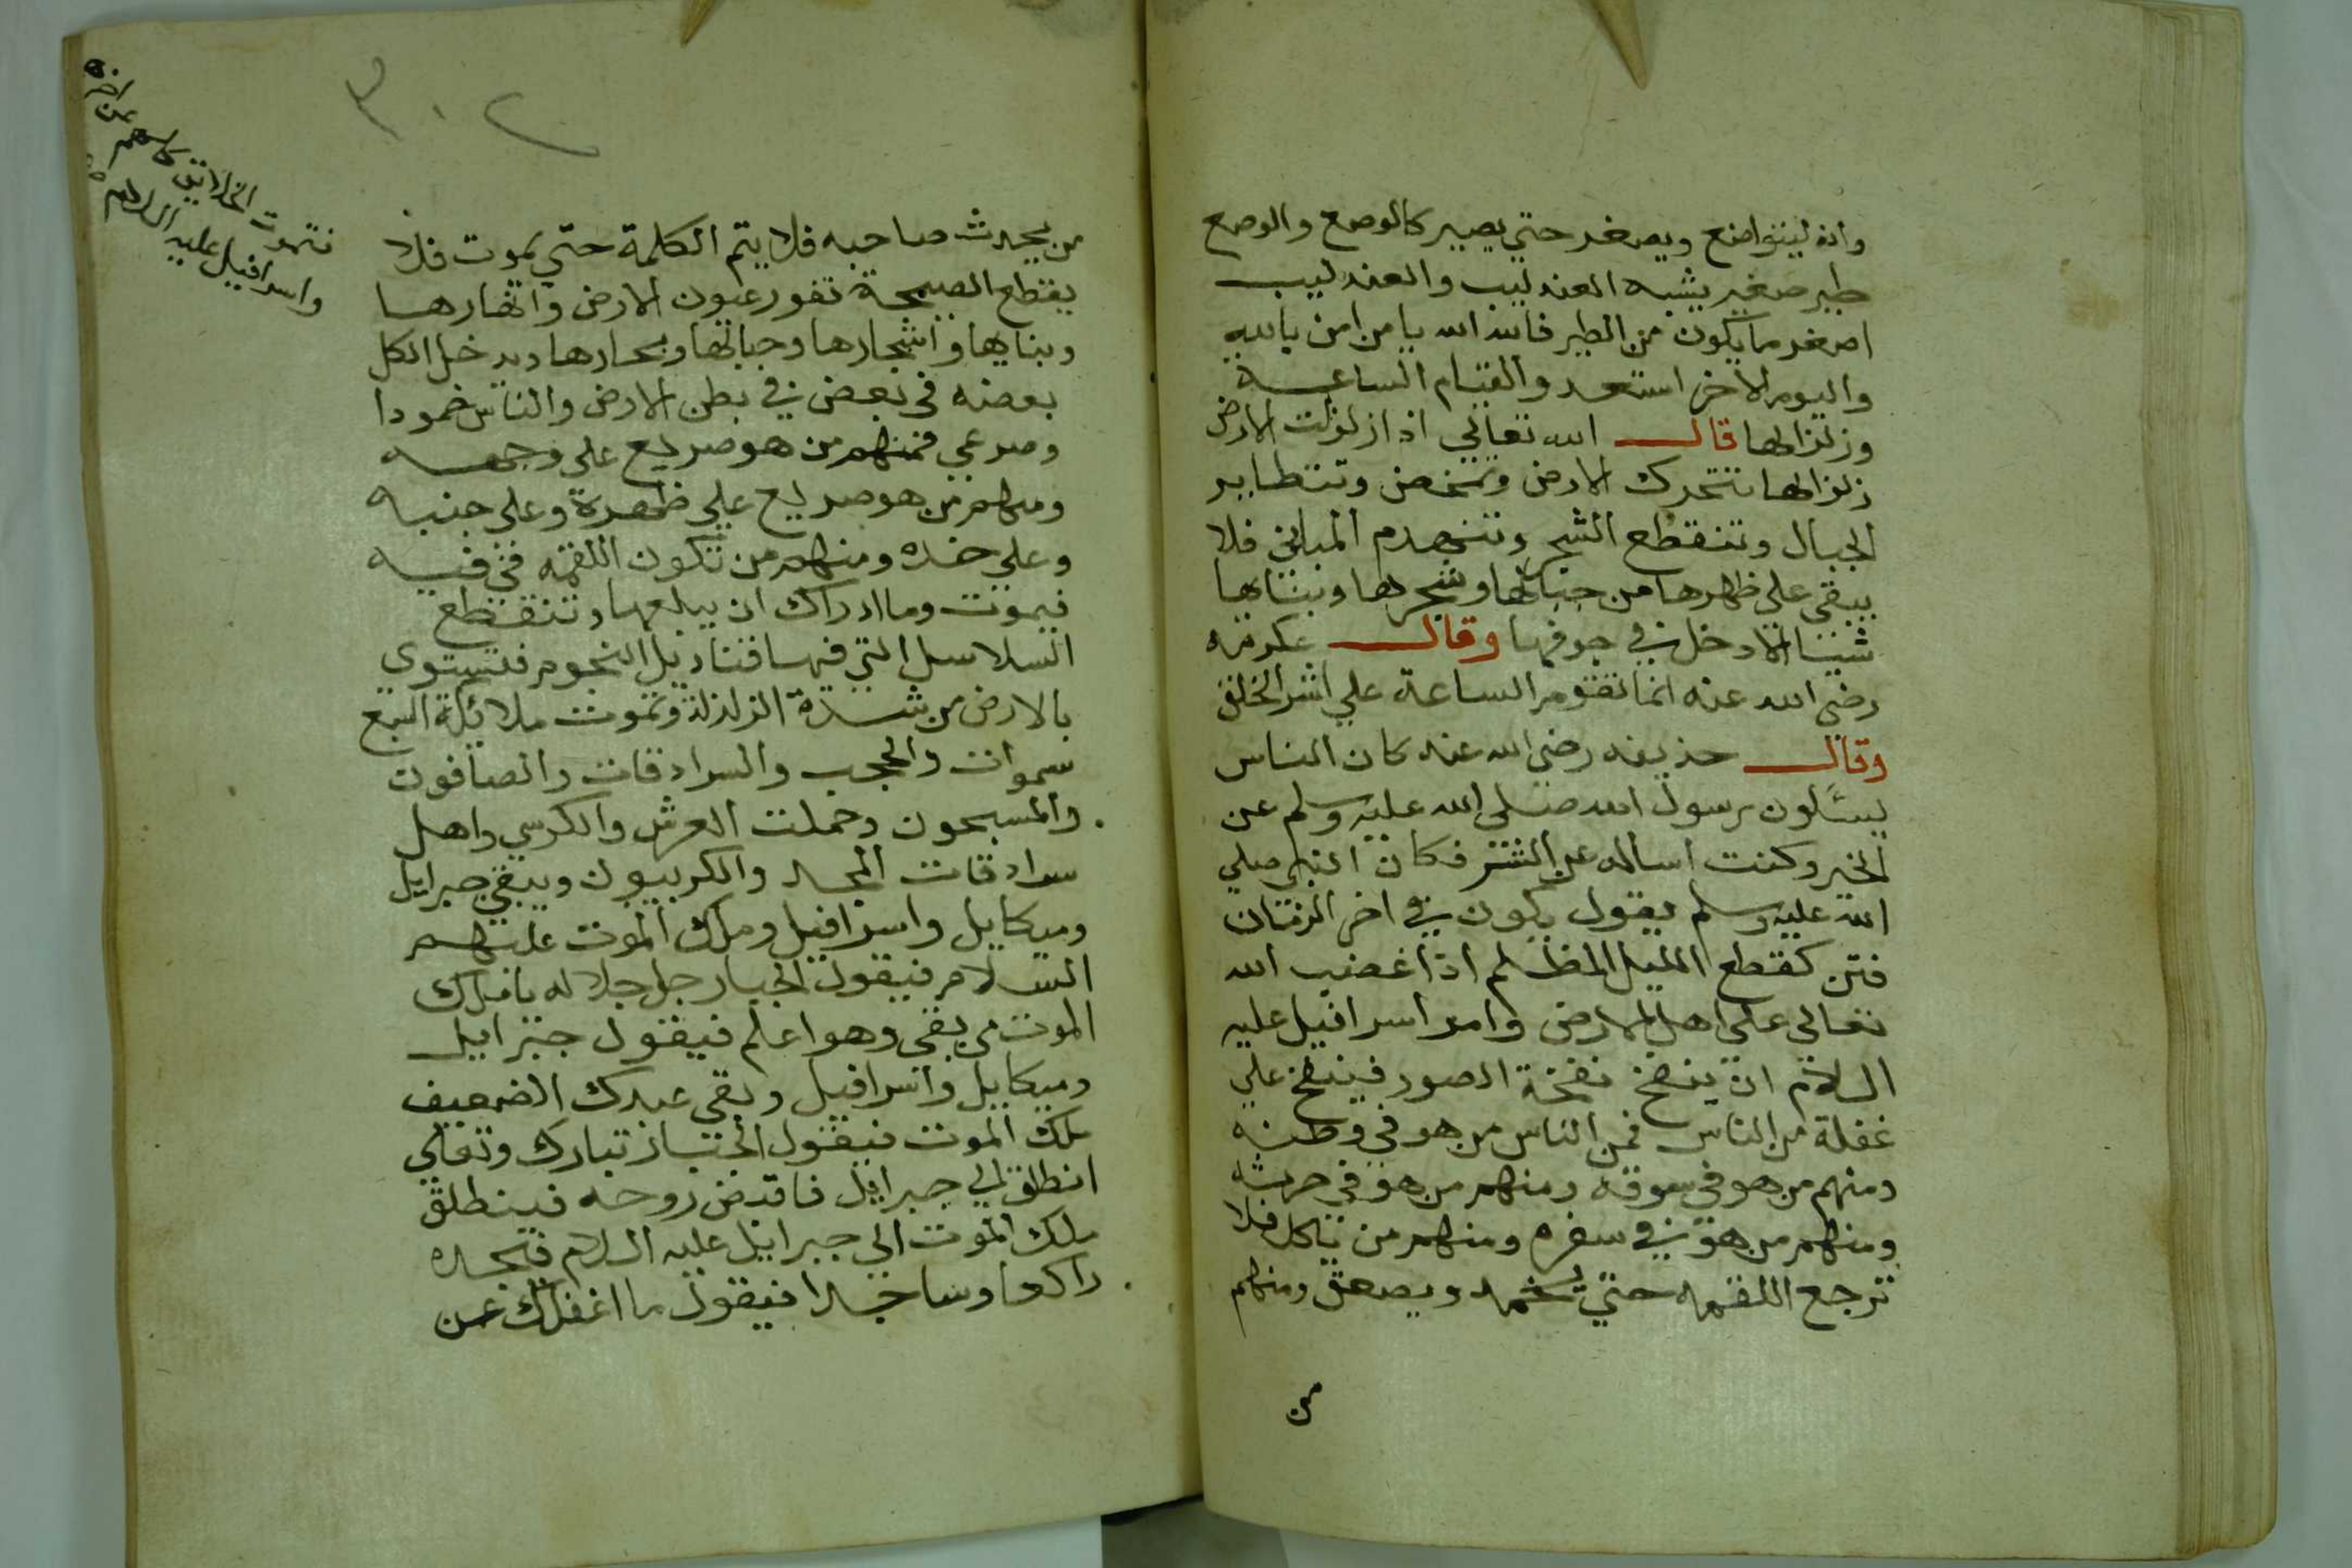 وانه ليتواضع ويصغر حتي يصير كالوصع والوصع
طير صغير يشبه العندليب والعندليب
اصغر ما يكون من الطير فالله الله يا من امن بالله
واليوم الاخر استعد والقيام الساعة
وزلزالها قال الله تعالي اذا زلزلت الارض
زلزالها تتحرك الارض وتمخض وتتطاير
الجبال وتنقطع الشجر وتنهدم المباني فلا
يبقي علي ظهرها من جبالها وشجرها وبنايها
شيئا الا دخل في جوفها وقال عكرمه
رضي الله عنه انما تقوم الساعة علي اشر الخلق
وقال حذيفه رضي الله عنه كان الناس
يسئلون رسول الله صلي الله عليه وسلم عن
الخير وكنت اساله عن الشر فكان النبي صلي
الله عليه وسلم يقول يكون في اخر الزمان
فتن كقطع الليل المظلم اذا غضب الله
تعالي علي اهل الارض وامر اسرافيل عليه
السلام ان ينفخ نفخة الصور فينفخ علي
غفلة من الناس فمن الناس من هو في وطنه
ومنهم من هو في سوقه ومنهم من هو في حرثه
ومنهم من هو في سفره ومنهم من ياكل فلا
ترجع اللقمه حتي يخمد ويصعق ومنهم
من
٣٠٢
من يحدث صاحبه فلا يتم الكلمة حتي يموت فلا
يقطع الصيحة تفور عيون الارض وانهارها
وبنايها واشجارها وجبالها وبحارها ويدخل الكل
بعضه في بعض في بطن الارض والناس خمودا
وصرعي فمنهم من هو صريع علي وجهه
ومنهم من هو صريع علي ظهرة وعلي جنبه
وعلي خده ومنهم من تكون اللقمه في فيه
فيموت وما ادراك ان يبلعها وتنقطع
السلاسل التي فيها قناديل النجوم فتستوي
بالارض من شدة الزلزلة وتموت ملائكة السبع
سموات والحجب والسرادقات والصافون
والمسبحون وحملت العرش والكرسي واهل
سرادقات المجد والكربيون ويبقي جبرايل
وميكايل واسرافيل وملك الموت عليهم
السلام فيقول الجبار جل جلاله يا ملك
الموت من بقي وهو اعلم فيقول جبرايل
وميكايل واسرافيل وبقي عبدك الضعيف
ملك الموت فيقول الجبار تبارك وتعالي
انطلق الي جبرايل فاقبض روحه فينطلق
ملك الموت الي جبرايل عليه السلام فيجده
راكعا وساجدا فيقول ما اغفلك عن
فتموت الخلايق كلهم عن اخره
واسرافيل عليه السلام